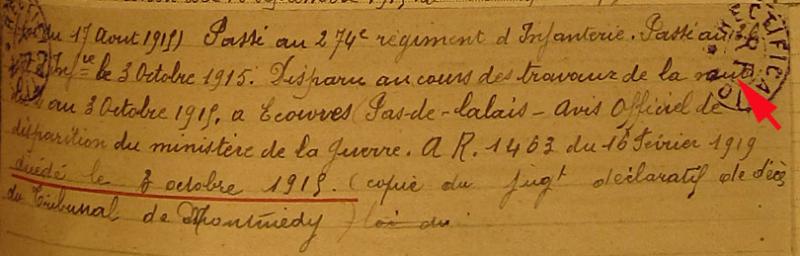 du 17 Aout 1915) Passé au 274e régiment d'Infanterie. Passé au
Inf le 3 Octobre 1915. Disparu au cours des travaux de la nuit
au 3 Octobre 1915, a Ecouves (Pas-de-Calais - Avis Officiel de
disparition du ministère de la Guerre. A R. 1463 du 16 Février 1919
décédé le 3 octobre 1915. (copie du jugt déclaratif de décès
du Tribunal de Montmédy) loi du